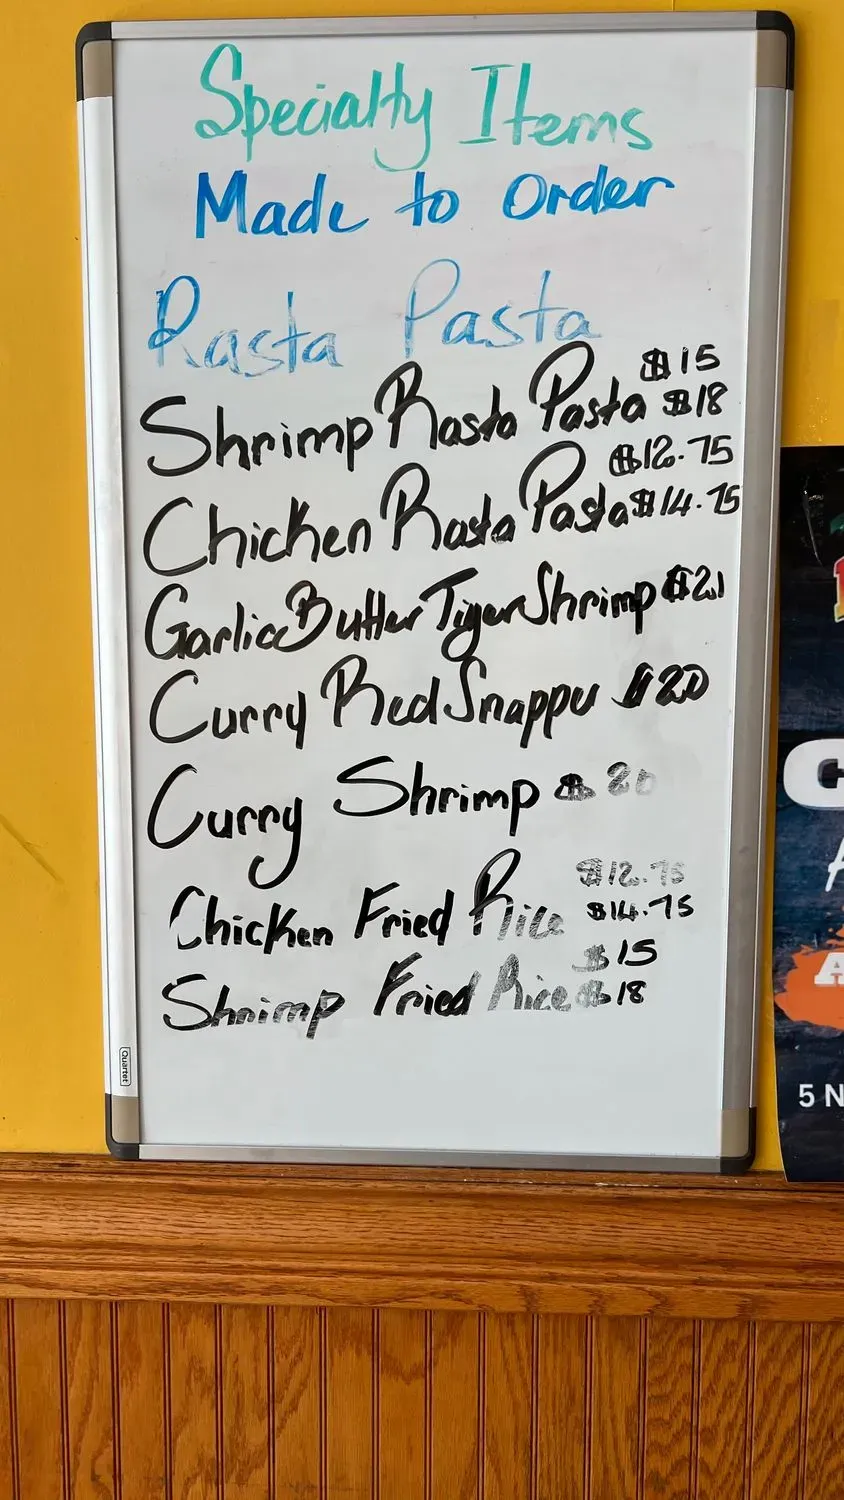 Specialty Items
Made to Order
Rasta Pasta
$15
Shrimp Rasta Pasta $18
$12.75
Chicken Rasta Pasta $14.75
Garlic Butter Tiger Shrimp $21
Curry Red Snapper $20
Curry Shrimp $20
$12.75
Chicken Fried Rice $14.75
$15
Shrimp Fried Rice $18
Quartet
5 N